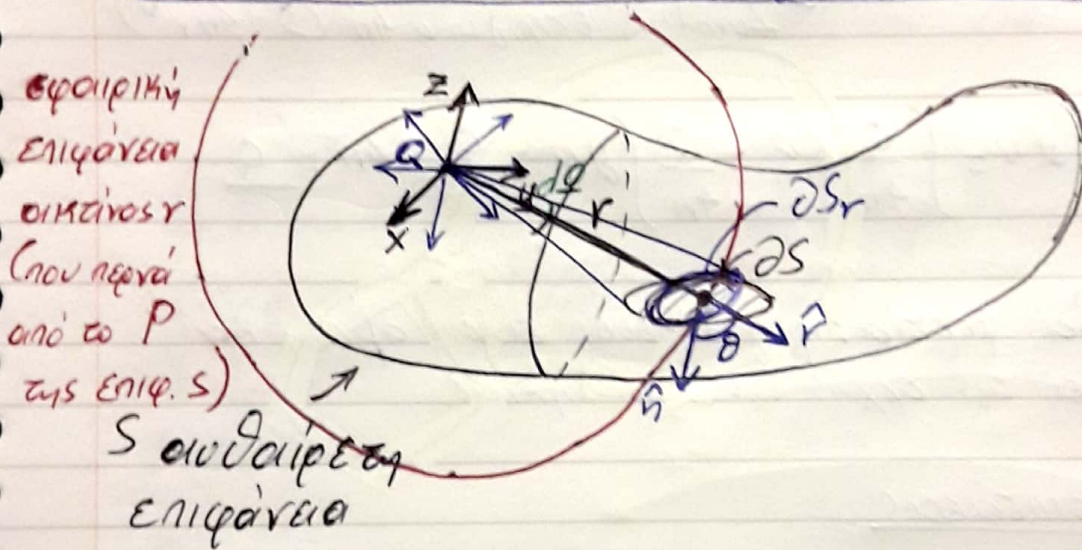 σφαιρική
επιφάνεια
ακτίνος r
(που περνά
από το P
της επιφ. S)
S αυθαίρετη
επιφάνεια
Z
Q
X
dΩ
r
∂Sr
∂S
r̂
θ
n̂